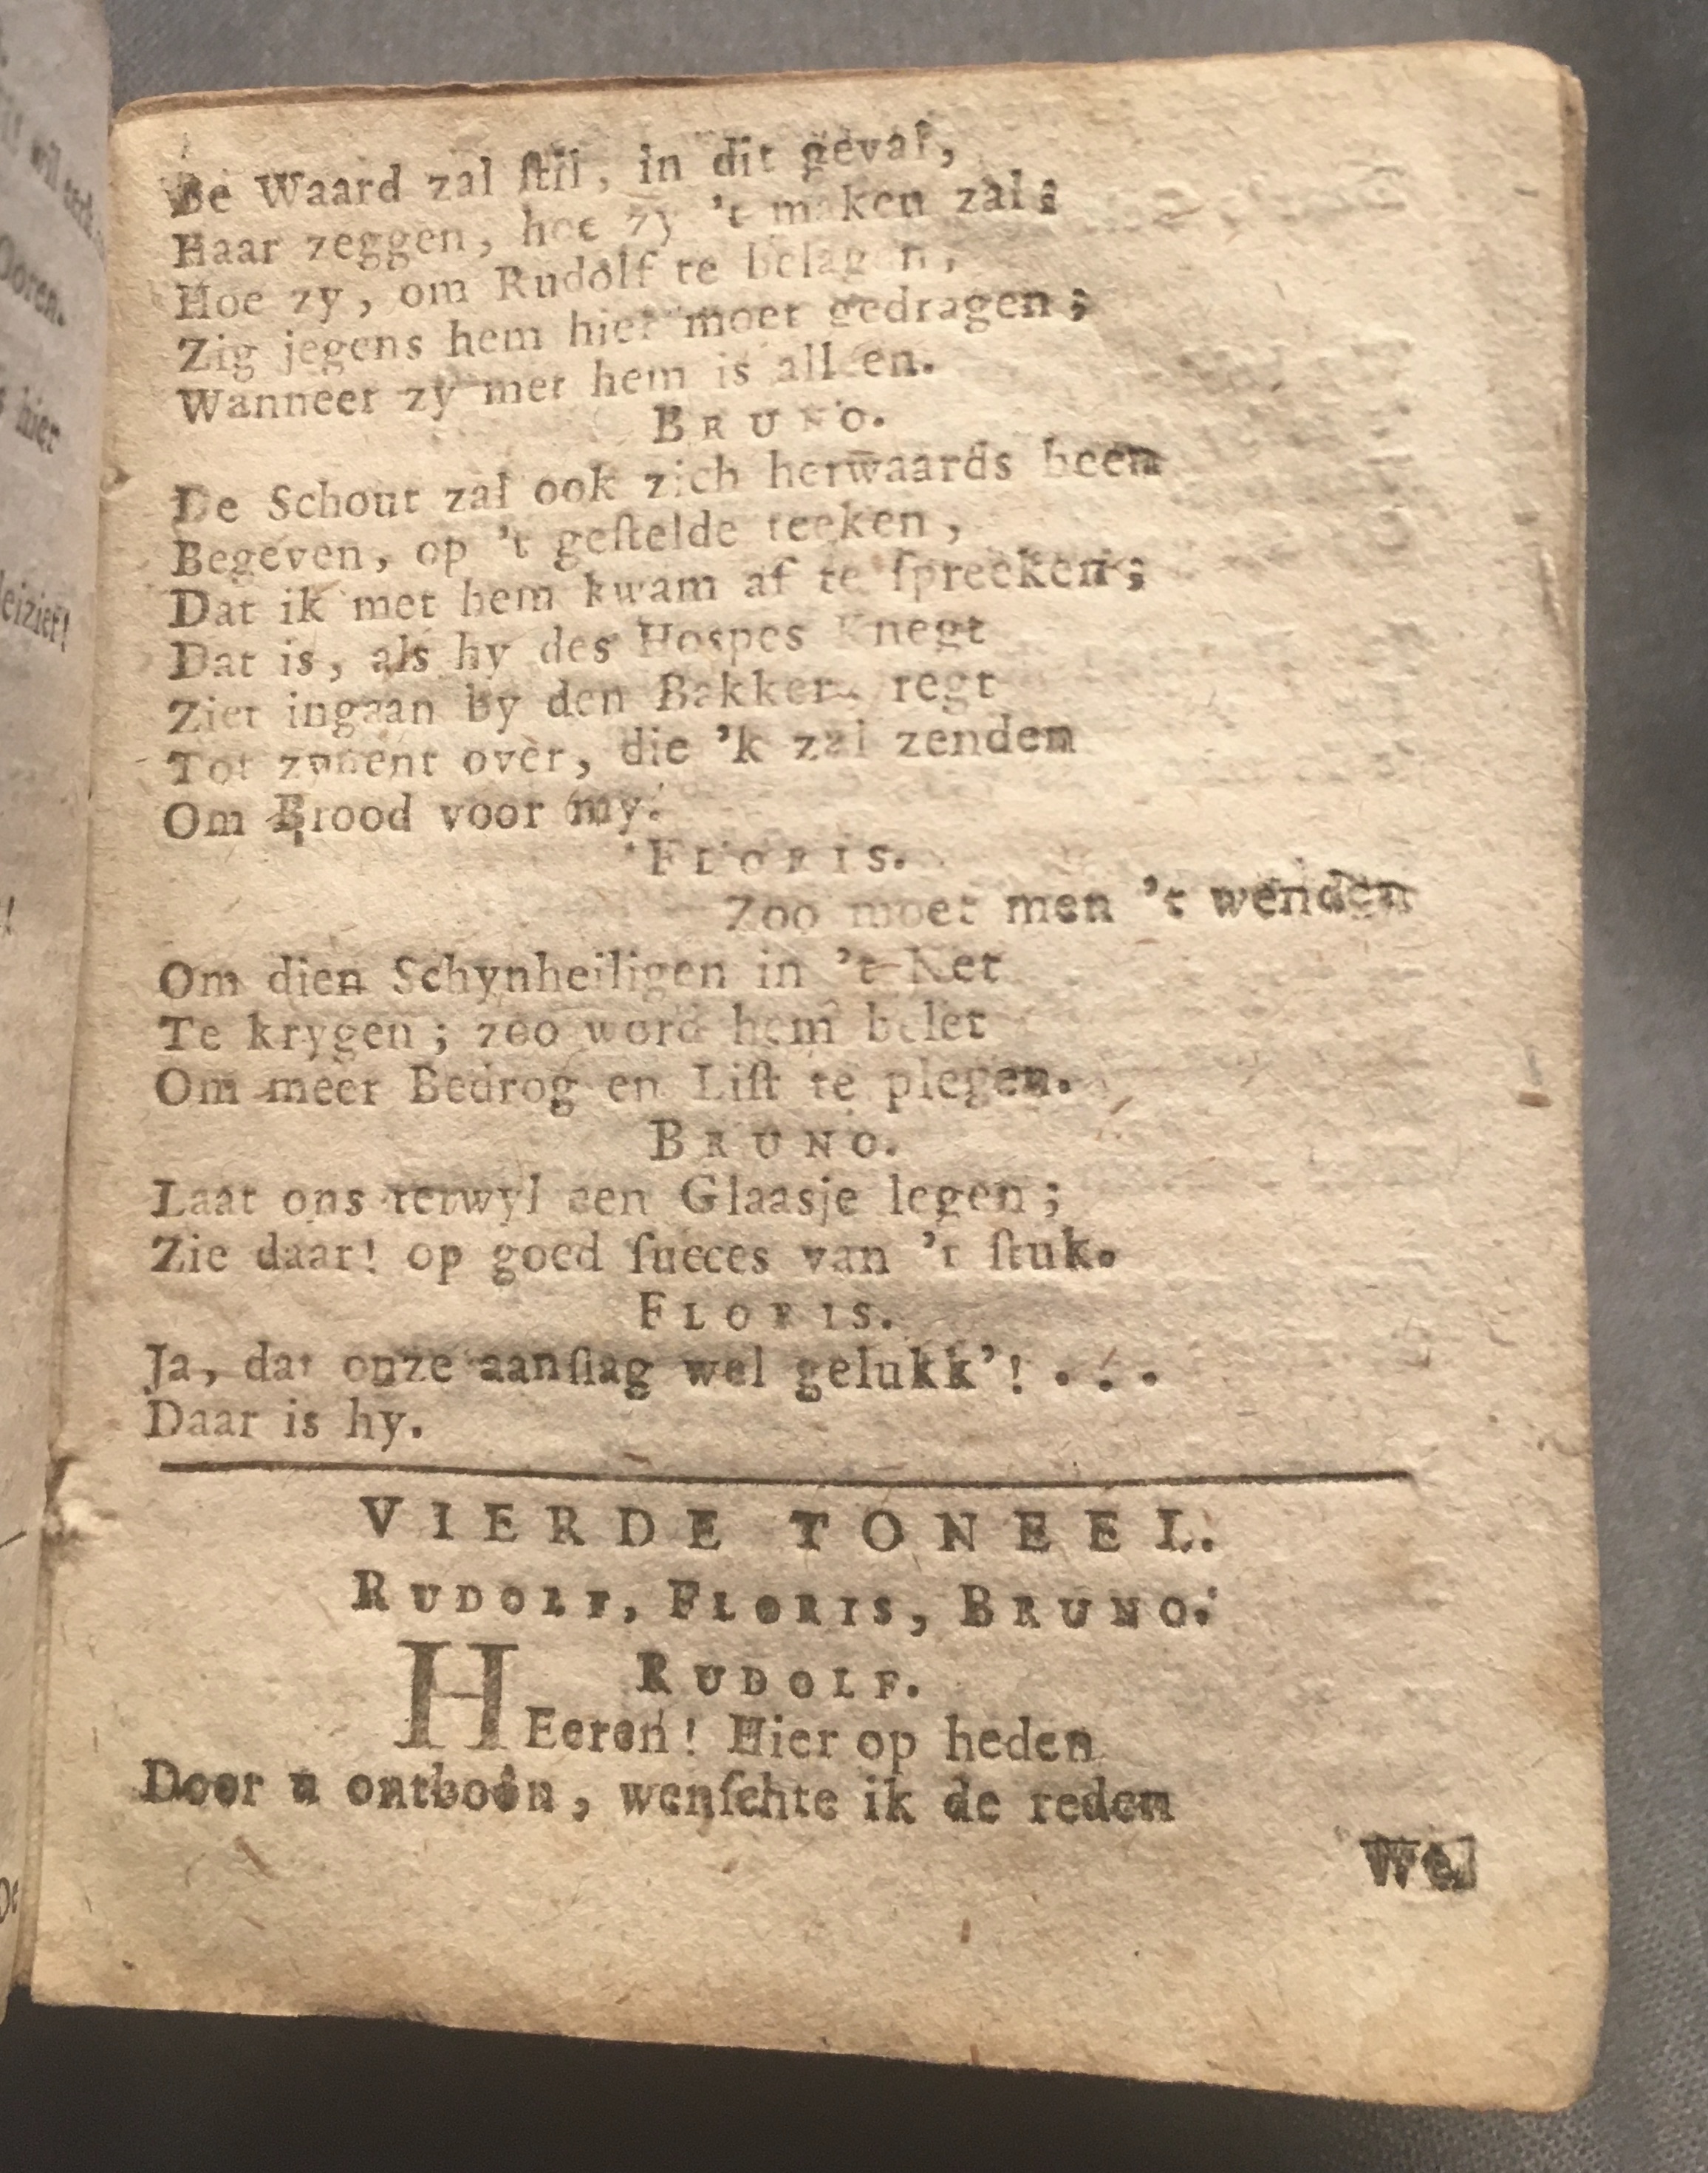 De Waard zal ſtil, in dit geval,
Haar zeggen, hoe zy 't maken zal;
Hoe zy, om Rudolf te belagen,
Zig jegens hem hier moet gedragen;
Wanneer zy met hem is alleen.
BRUNO.
De Schout zal ook zich herwaards heen
Begeven, op 't geſtelde teeken,
Dat ik met hem kwam af te ſpreeken;
Dat is, als hy des Hospes Knegt
Ziet ingaan by den Bakker, regt
Tot zynent over, die 'k zal zenden
Om Brood voor my.
FLORIS.
Zoo moet men 't wenden
Om dien Schynheiligen in 't Net
Te krygen; zoo word hem belet
Om meer Bedrog en Liſt te plegen.
BRUNO.
Laat ons terwyl een Glaasje legen;
Zie daar! op goed ſucces van 't ſtuk.
FLORIS.
Ja, dat onze aanſlag wel gelukk'! . . .
Daar is hy.
VIERDE TONEEL.
RUDOLF, FLORIS, BRUNO.
RUDOLF.
HEeren! Hier op heden
Door u ontboôn, wenſchte ik de reden
Wel
wil
Ooren.
hier
!